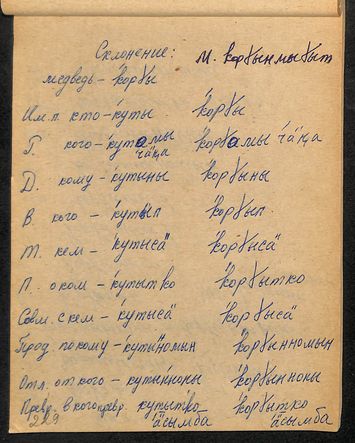 Склонение: М. корɣынмыɣыт
медведь – корɣы
Им.п. кто – куты корɣы
Г. кого – кутамы чāӄа корɣамы чāӄа
Д. кому – кутыны корɣыны
В. кого – кутып корɣып
Т. кем – кутысӓ корɣысӓ
П. о ком – кутытко корɣытко
Совм. с кем – кутысӓ корɣысӓ
Прод. по кому – кутыномын корɣынномын
Отл. от кого – кутынноны корɣынноны
Превр. в кого превр. кутытко корɣытко
ӓсымба ӓсымба